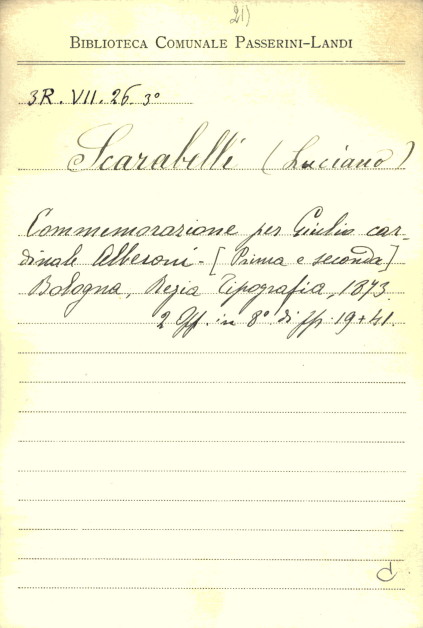 21)
BIBLIOTECA COMUNALE PASSERINI-LANDI
3R. VII. 26. 3°
Scarabelli (Luciano)
Commemorazione per Giulio car-
dinale Alberoni - [Prima e seconda]
Bologna, Regia Tipografia, 1873.
2 Off. in 8° di pp. 19+41.